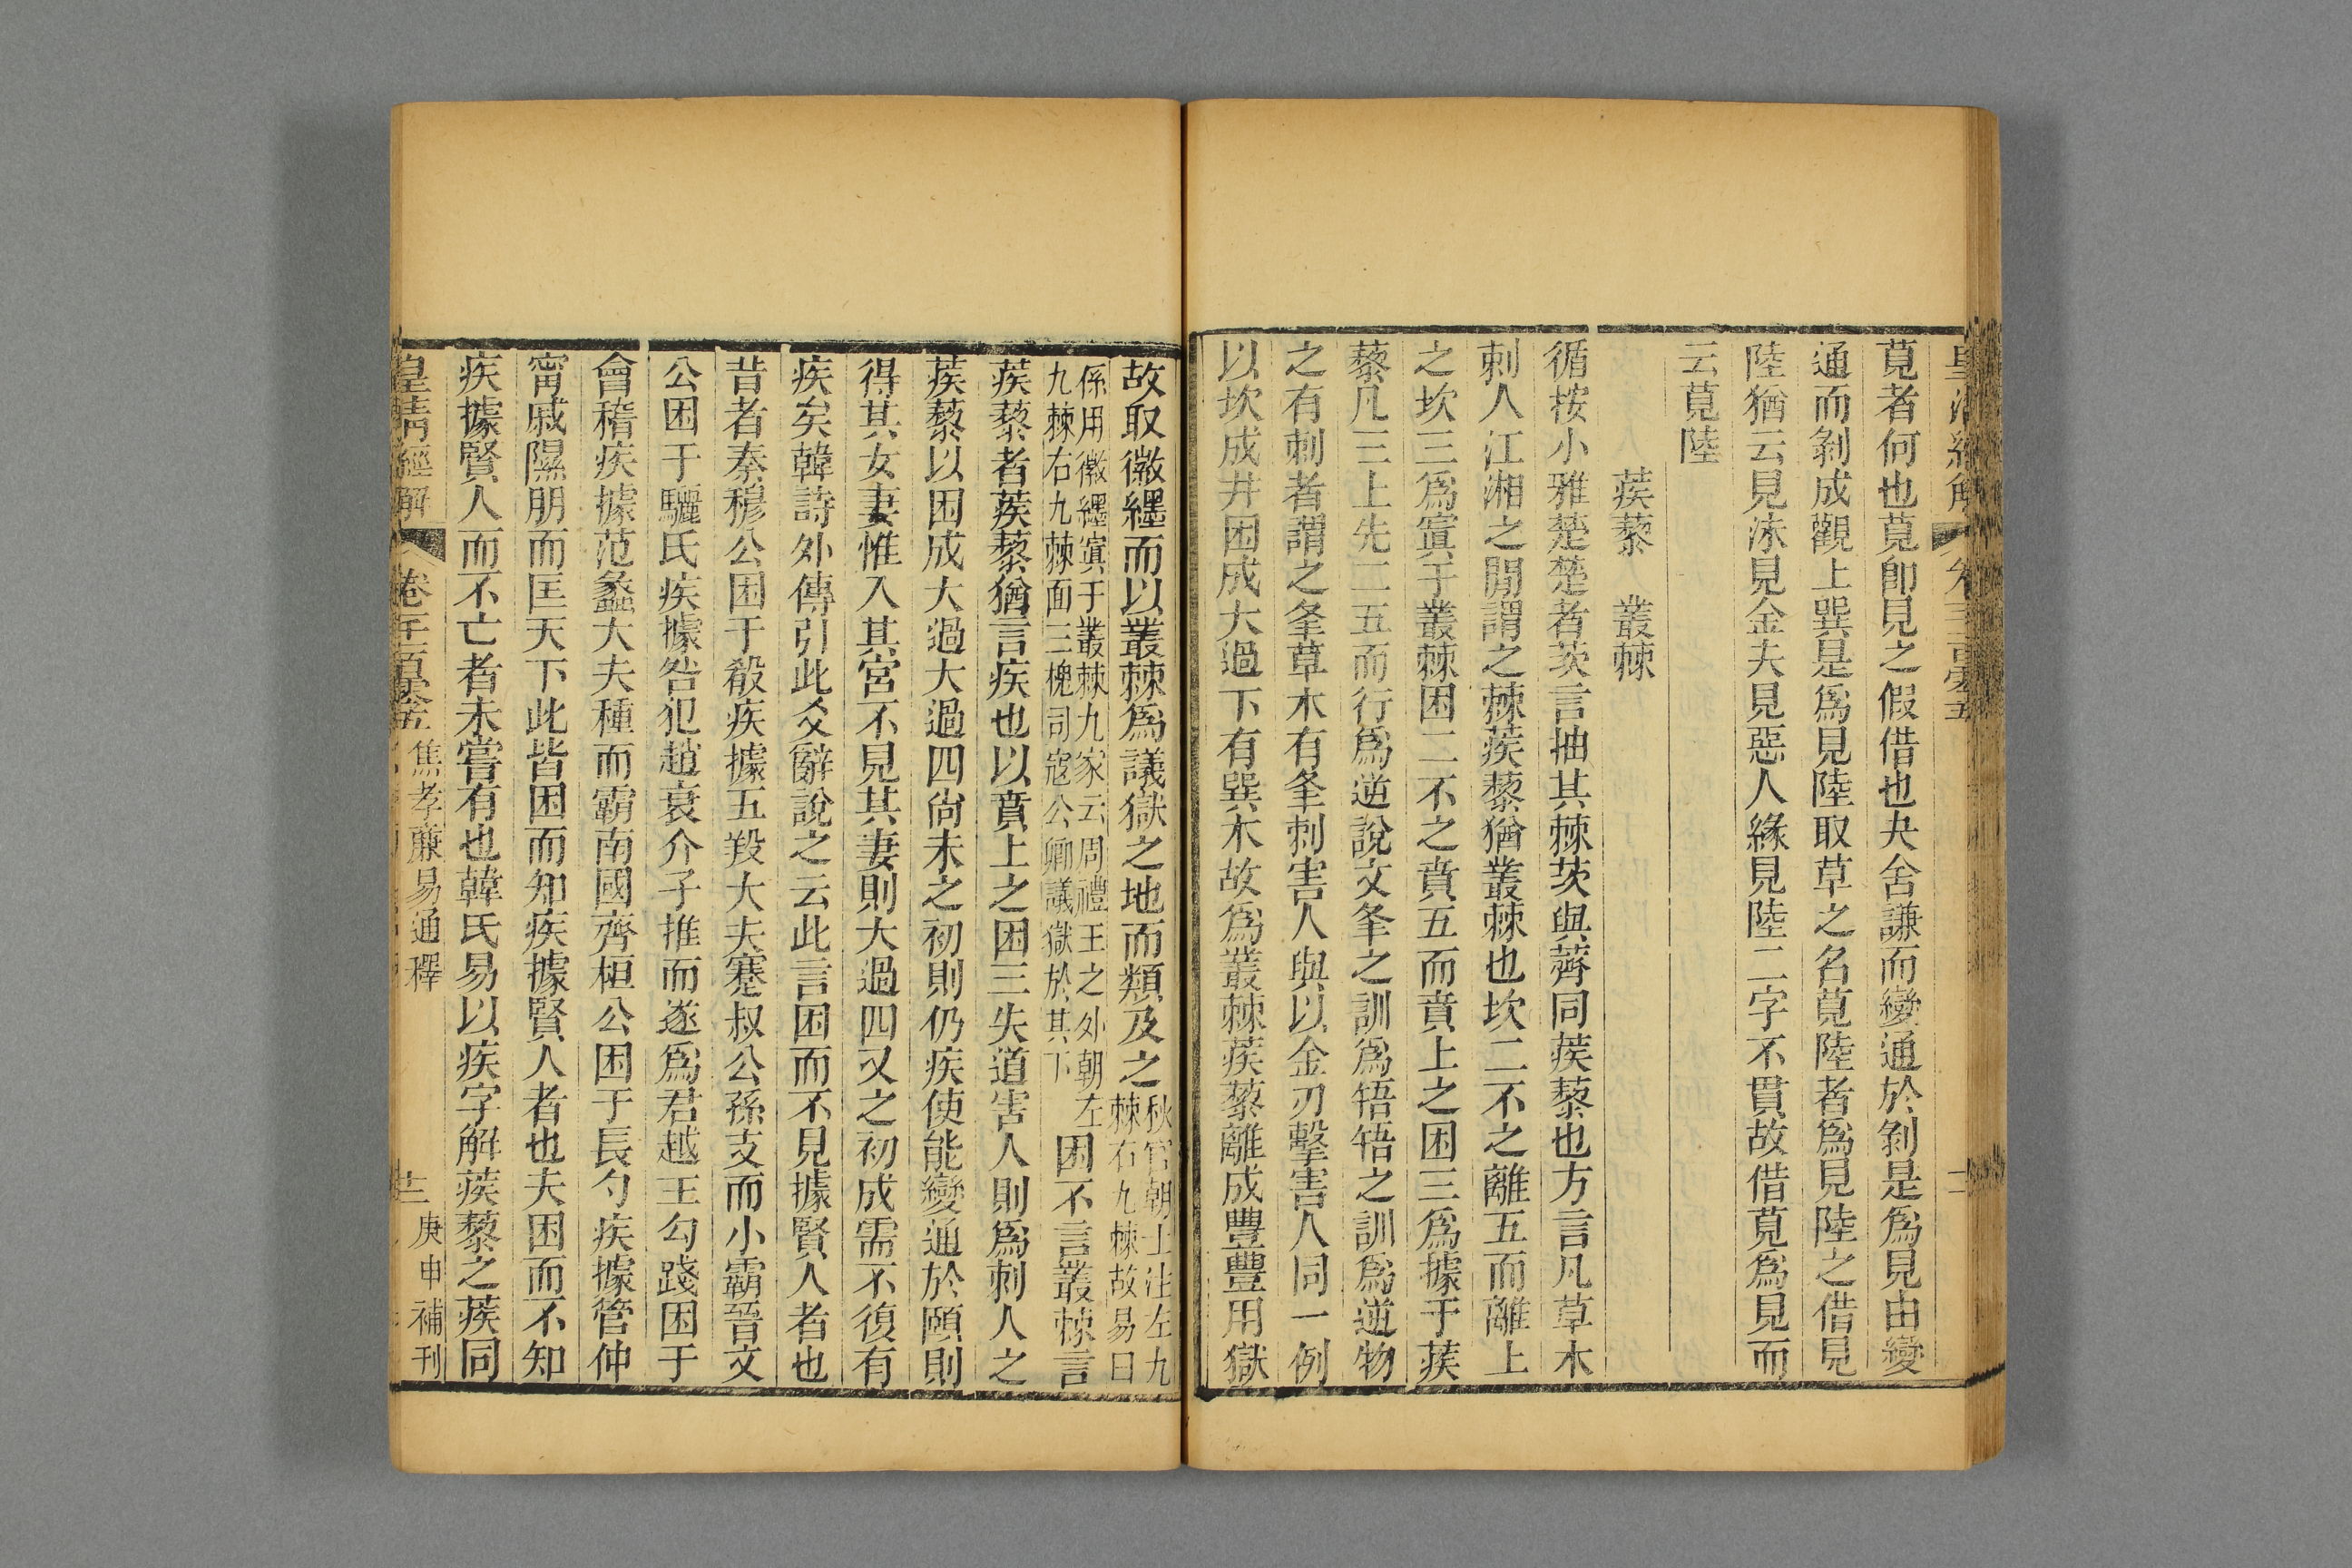 莧者何也莧卽見之假借也夬舍謙而變通於剝是爲見由變
通而剝成觀上巽是爲見陸取草之名莧陸者爲見陸之借見
陸猶云見沬見金夫見惡人緣見陸二字不貫故借莧爲見而
云莧陸
蒺藜　叢棘
循按小雅楚楚者茨言抽其棘茨與薺同蒺藜也方言凡草木
刺人江湘之閒謂之棘蒺藜猶叢棘也坎二不之離五而離上
之坎三爲寘于叢棘困二不之賁五而賁上之困三爲據于蒺
藜凡三上先二五而行爲逆說文夆之訓爲啎啎之訓爲逆物
之有刺者謂之夆草木有夆刺害人與以金刃擊害人同一例
以坎成井困成大過下有巽木故爲叢棘蒺藜離成豐豐用獄
故取徽纆而以叢棘爲議獄之地而類及之
秋官朝士注左九
棘右九棘故易曰
係用徽纆寘于叢棘九家云周禮王之外朝左
九棘右九棘面三槐司寇公卿議獄於其下
困不言叢棘言
蒺藜者蒺藜猶言疾也以賁上之困三失道害人則爲刺人之
蒺藜以困成大過大過四尙未之初則仍疾使能變通於頤則
得其女妻惟入其宮不見其妻則大過四又之初成需不復有
疾矣韓詩外傳引此爻辭說之云此言困而不見據賢人者也
昔者秦穆公困于殽疾據五羖大夫蹇叔公孫支而小霸晉文
公困于驪氏疾據咎犯趙衰介子推而遂爲君越王勾踐困于
會稽疾據范蠡大夫種而霸南國齊桓公困于長勺疾據管仲
甯戚隰朋而匡天下此皆困而知疾據賢人者也夫困而不知
疾據賢人而不亡者未嘗有也韓氏易以疾字解蒺藜之蒺同
皇淸經解　卷一千一百零五　焦孝廉易通釋　十二　庚申補刊